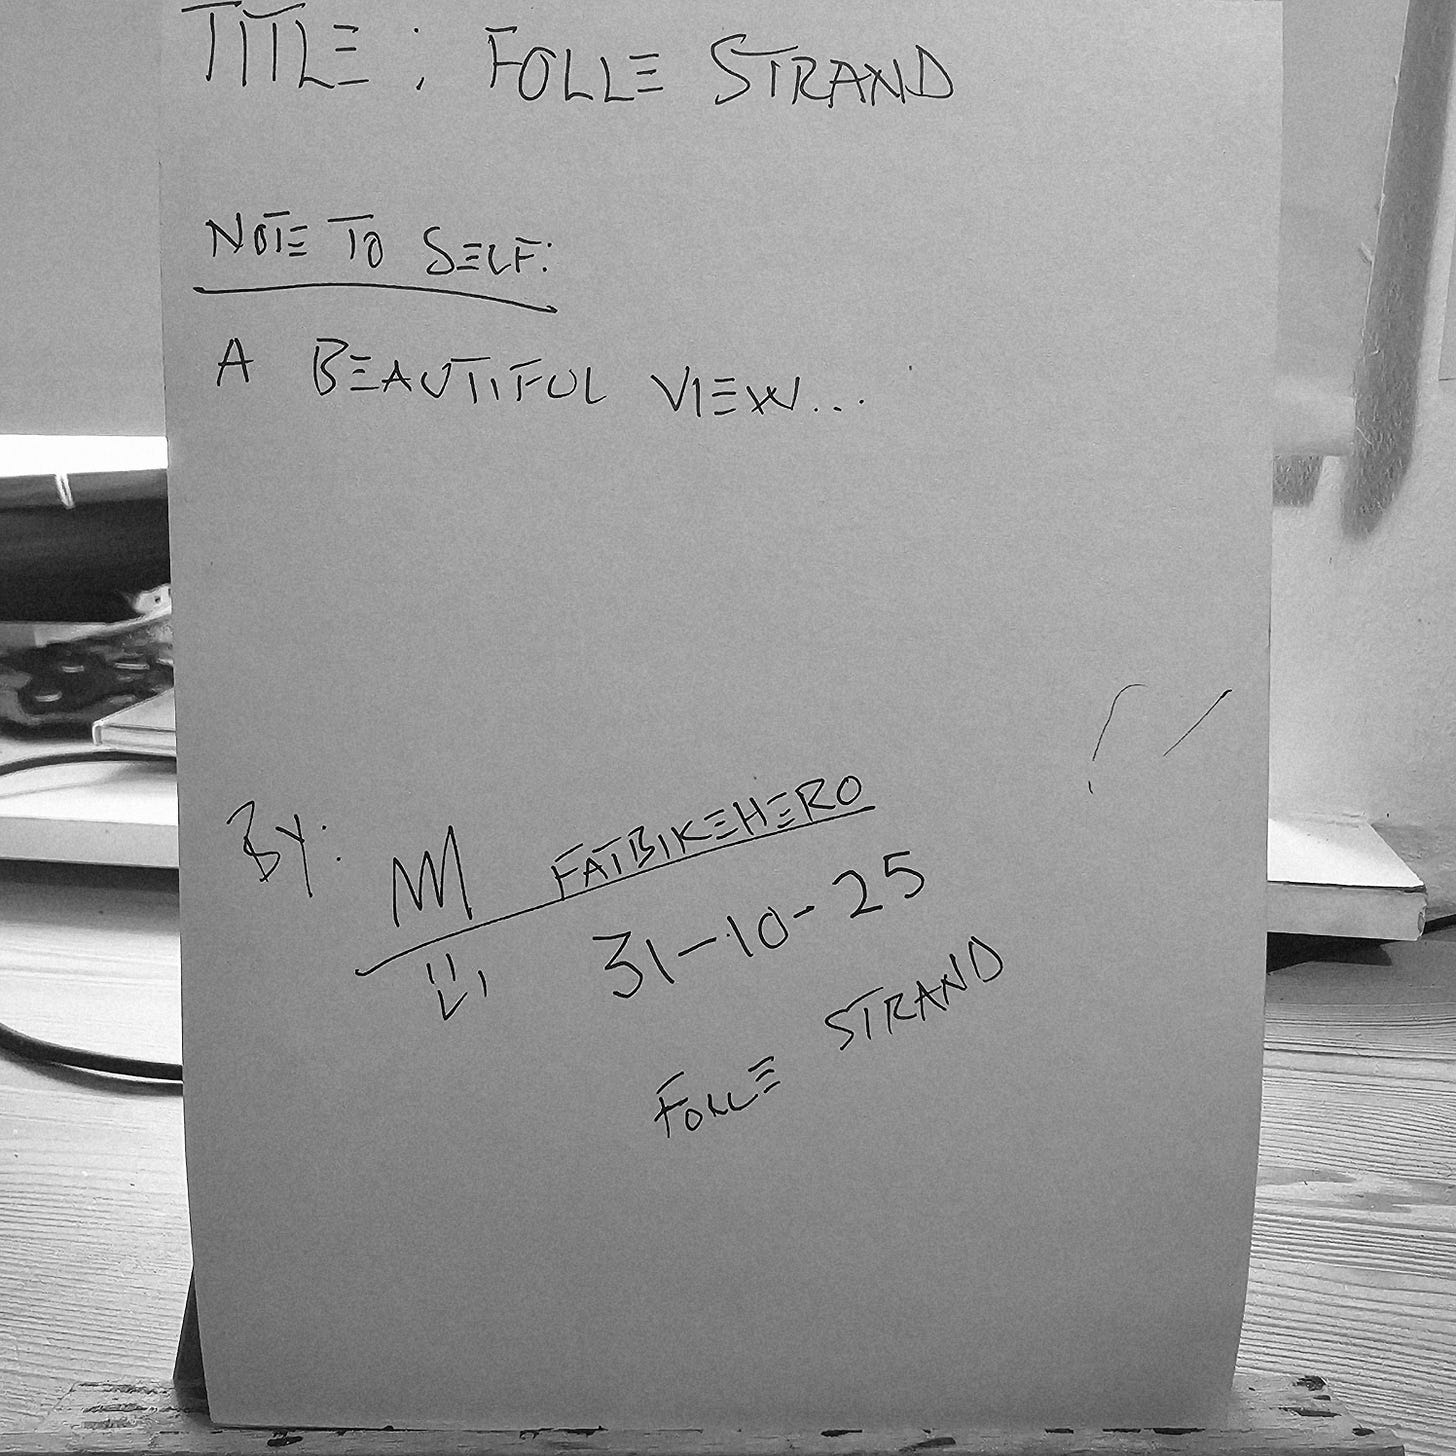 TITLE: FOLLE STRAND
NOTE TO SELF:
A BEAUTIFUL VIEW...
BY: FATBIKEHERO
31-10-25
FOLLE STRAND